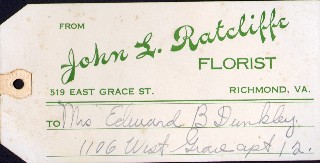 FROM
John L. Ratcliffe
FLORIST
519 EAST GRACE ST. RICHMOND, VA.
TO Mrs Edward B Dunkley.
1106 West Grace apt 12.